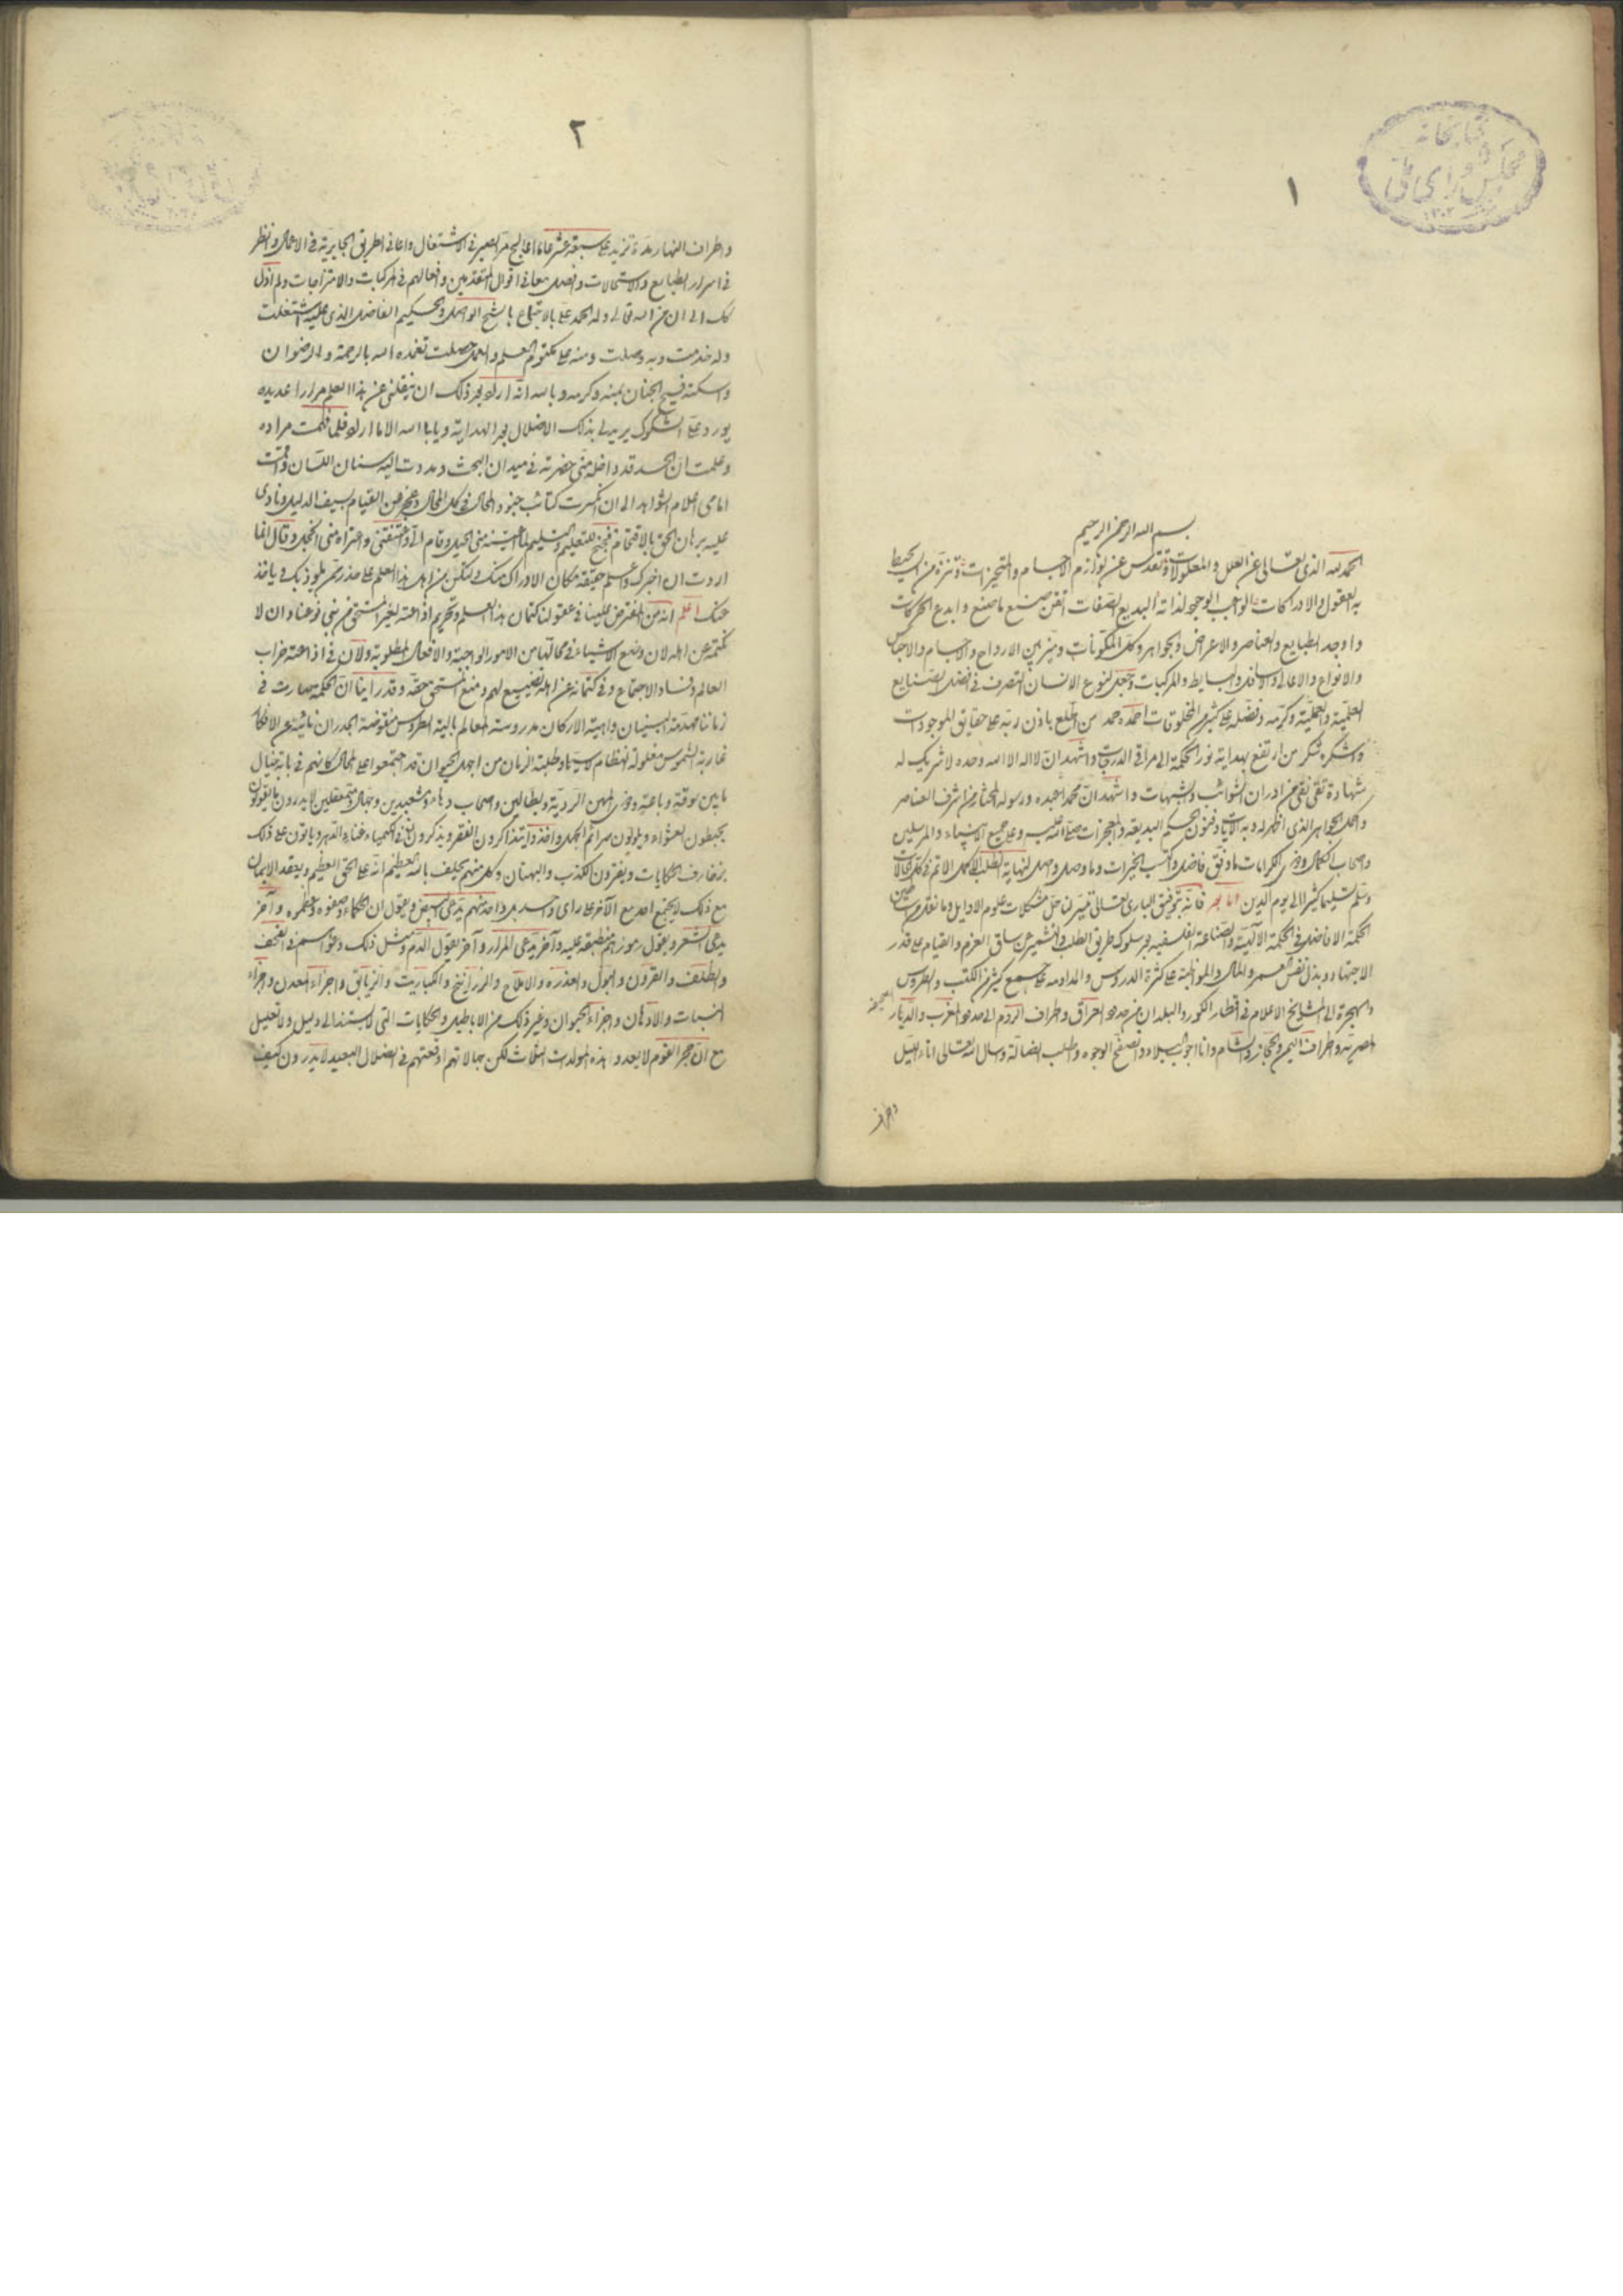 كتابخانه
مجلس شورای ملی
١
بسم الله الرحمن الرحيم
الحمد لله الذى تعالى عن العلل والمعلولات وتقدس عن لوازم الاجسام والمتحيزات وتنزه من ان يحيط
به العقول والادراكات الواجب الوجود لذاته البديع الصفات اتقن صنع ما صنع وابدع الحركات
واوجد الطبايع والعناصر والاعراض والجواهر وكل المكونات وميز بين الارواح والاجسام والاجناس
والانواع والاعالى والاسافل والبسايط والمركبات وجعل لنوع الانسان التصرف فى افضل الصنايع
العلمية والعملية وكرمه وفضله على كثير من المخلوقات احمده حمد من اطلع باذن ربه على حقايق الموجودات
واشكره شكر من ارتفع بهداية نور الحكمة الى مراقى الدرجات واشهد ان لا اله الا الله وحده لا شريك له
شهادة تقى نقى من ادران الشوائب والشبهات واشهد ان محمدا عبده ورسوله المختار من اشرف العناصر
واكمل الجواهر الذى اظهر له وبه الايات وفنون الحكم البديعة والمعجزات صلى الله عليه وعلى جميع الانبياء والمرسلين
واصحاب الكمال وذوى الكرامات ما وفق فاضل واكتسب الخيرات وما وصل واصل لنهاية الطلب الاكمل الاتم فى كل الحالات
وسلم تسليما كثيرا الى يوم الدين اما بعد فانه بتوفيق البارى تعالى تيسر لنا حل مشكلات علوم الاوايل وما نقل من اساطين
الحكمة الافاضل فى الحكمة الالهية والصناعة الفلسفية بعد سلوك طريق الطلب والتشمير عن ساق العزم والقيام على قدر
الاجتهاد وبذل نفس العمر والمال والمواظبة على كثرة الدروس والمداومة على جمع كثير من الكتب والطروس
والهجرة الى المشايخ الاعلام فى اقطار الكور والبلدان من حدود العراق واطراف الروم الى حدود المغرب والديار
المصرية واطراف اليمن والحجاز والشام وانا اجوب البلاد واتصفح الوجوه واطلب الضالة واسال الله تعالى اناء الليل
واطراف
٢
واطراف النهار مدة تزيد على سبعة عشر عاما اعالج مر الصبر فى الاشتغال واعانى الطريق الجابرية فى الاعمال وانظر
فى اسرار الطبايع والاستحالات وافصل معانى اقوال المتقدمين وافعالهم فى المركبات والامتزاجات ولم ازل
كذلك الى ان من الله تعالى وله الحمد على بالاجتماع بالشيخ الواصل والحكيم الفاضل الذى عليه اشتغلت
وله خدمت وبه وصلت ومنه على مكتوم العلم والعمل حصلت تغمده الله بالرحمة والرضوان
واسكنه فسيح الجنان بمنه وكرمه وبالله انه اراد بعد ذلك ان ينقلنى عن هذا العلم مرارا عديده
يورد على الشكوك يريد لى بذلك الاضلال بعد الهداية ويابا الله الا ما اراد فلما فهمت مراده
وعلمت ان الحسد قد داخله منى حضرته فى ميدان البحث ومددت اليه سنان اللسان وقمت
امامى اعلام الشواهد الى ان انكسرت كتائب جنود المحال فى كل المجال وعجز عن القيام بسيف الدليل ونادى
عليه برهان الحق بالاقتحام فجنح للتعليم والتسليم وقام الى واعتنقنى واعتراه منى الخجل وقال انما
اردت ان اختبرك واعلم حقيقة مكان الادراك منك ولتكن من اهل هذا العلم على حذر ممن
عنك اعلم انه من المفترض علينا فى عقولنا كتمان هذا العلم وتحريم اذاعته لغير المستحق من بنى نوعنا وان لا
نكتمه عن اهله لان وضع الاشياء فى محالها من الامور الواجبة والافعال المطلوبة ولان فى اذاعته خراب
العالم وفساد الاجتماع وفى كتمانه عن اهله تضييع لهم ومنع المستحق حقه وقد راينا ان الحكمة صارت فى
زماننا مهدمة البنيان واهية الاركان مدروسة المعالم بالية الطروس منقوضة الجدران
غاربة الشموس مغلولة النظام لا سيما وطلبة الزمان من اجهل الحيوان قد اجتمعوا على المحال كانهم فى بابه خيال
ما بين سوقة وباعة وذوى المهن الردية وبطالين واصحاب دهاء ومشعبذين وجهال ومتعقلين لا يدرون ما يقولون
يخبطون العشواء ويذكرون ان فى الكيمياء غناء الدهر وياتون على ذلك
بزخارف الحكايات ويفترون الكذب والبهتان وكل منهم يحلف بالله العظيم انه على الحق العظيم ويعقد الايمان
مع ذلك لا يجتمع احد مع الاخر على راى واحد بل واحد منهم يدعى البيض ويقول ان الحكماء وصفوه وعظموه واخر
يدعى الشعر ويقول رموزهم منطبقة عليه واخر يدعى المرار واخر يقول الدم ومثل ذلك دعواهم فى القحف
والظلف والقرون والبول والعذره والاملاح والزرانيخ والكباريت والزيابق واجزاء المعدن واجزاء
النبات والادهان واجزاء الحيوان وغير ذلك من الاباطيل والحكايات التى لا تستند الى دليل ولا تعليل
مع ان حجر القوم لا يعدو هذه المولدات الثلاث لكن جهالاتهم اوقعتهم فى الضلال البعيد لا يدرون كيف